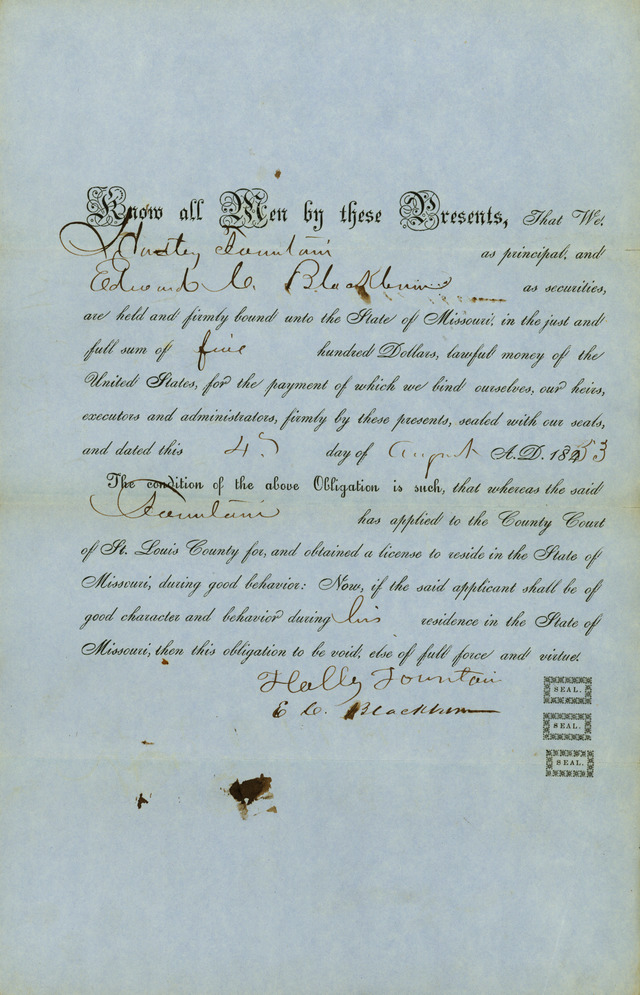 Know all Men by these Presents, That We,
Fountain as principal, and
Edward C. Blackburn as securities,
are held and firmly bound unto the State of Missouri, in the just and
full sum of five hundred Dollars, lawful money of the
United States, for the payment of which we bind ourselves, our heirs,
executors and administrators, firmly by these presents, sealed with our seals,
and dated this 4 day of August A.D. 1853
The condition of the above Obligation is such, that whereas the said
Fountain has applied to the County Court
of St. Louis County for, and obtained a license to reside in the State of
Missouri, during good behavior: Now, if the said applicant shall be of
good character and behavior during his residence in the State of
Missouri, then this obligation to be void, else of full force and virtue.
Fountain SEAL.
E C. Blackburn SEAL.
SEAL.